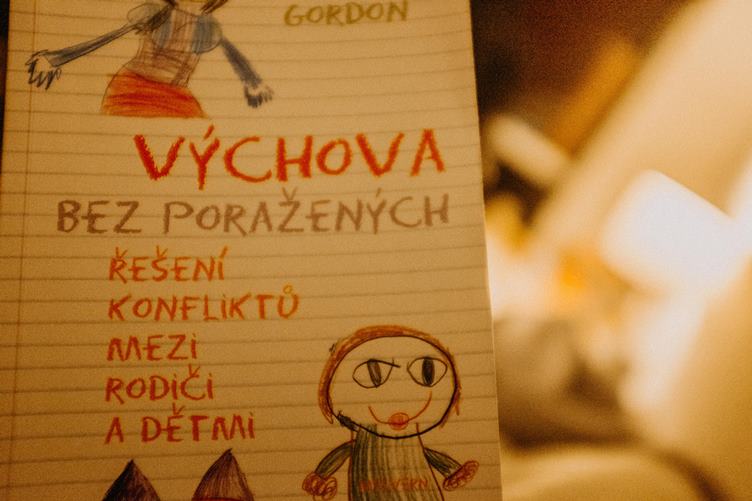 GORDON
VÝCHOVA
BEZ PORAŽENÝCH
ŘEŠENÍ
KONFLIKTŮ
MEZI
RODIČI
A DĚTMI